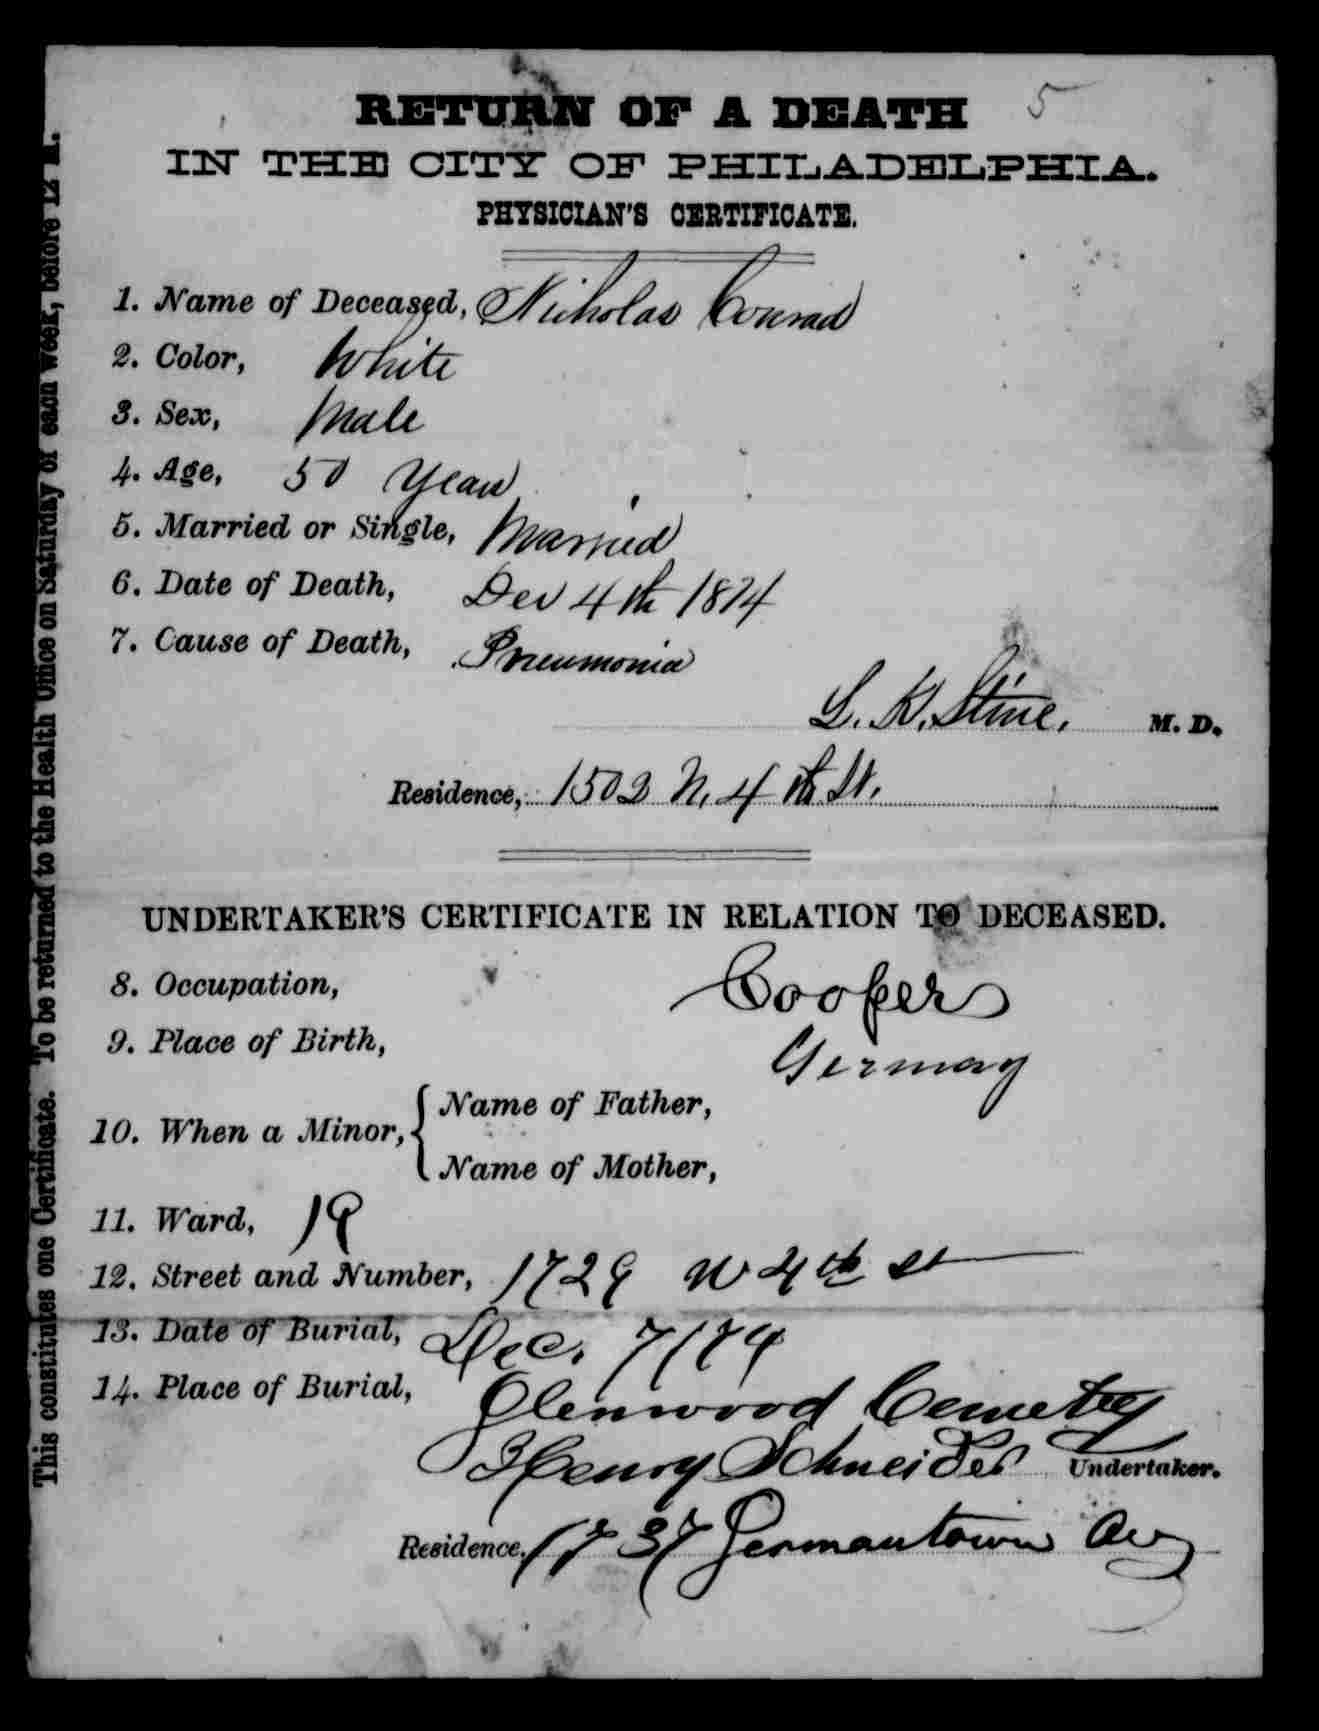 5
RETURN OF A DEATH
IN THE CITY OF PHILADELPHIA.
PHYSICIAN'S CERTIFICATE.
1. Name of Deceased, Nicholas Conrad
2. Color, White
3. Sex, Male
4. Age, 50 Years
5. Married or Single, Married
6. Date of Death, Dec 4th 1874
7. Cause of Death, Pneumonia
L. K. Stine. M. D.
Residence, 1502 N. 4th St.
UNDERTAKER'S CERTIFICATE IN RELATION TO DECEASED.
8. Occupation, Cooper
9. Place of Birth, Germany
10. When a Minor, { Name of Father,
Name of Mother,
11. Ward, 19
12. Street and Number, 1729 N 4th St
13. Date of Burial, Dec. 7/74
14. Place of Burial, Glenwood Cemetry
Henry Schneider Undertaker.
Residence, 1737 Germantown Av
This constitutes one Certificate. To be returned to the Health Office on Saturday of each week, before 12 M.